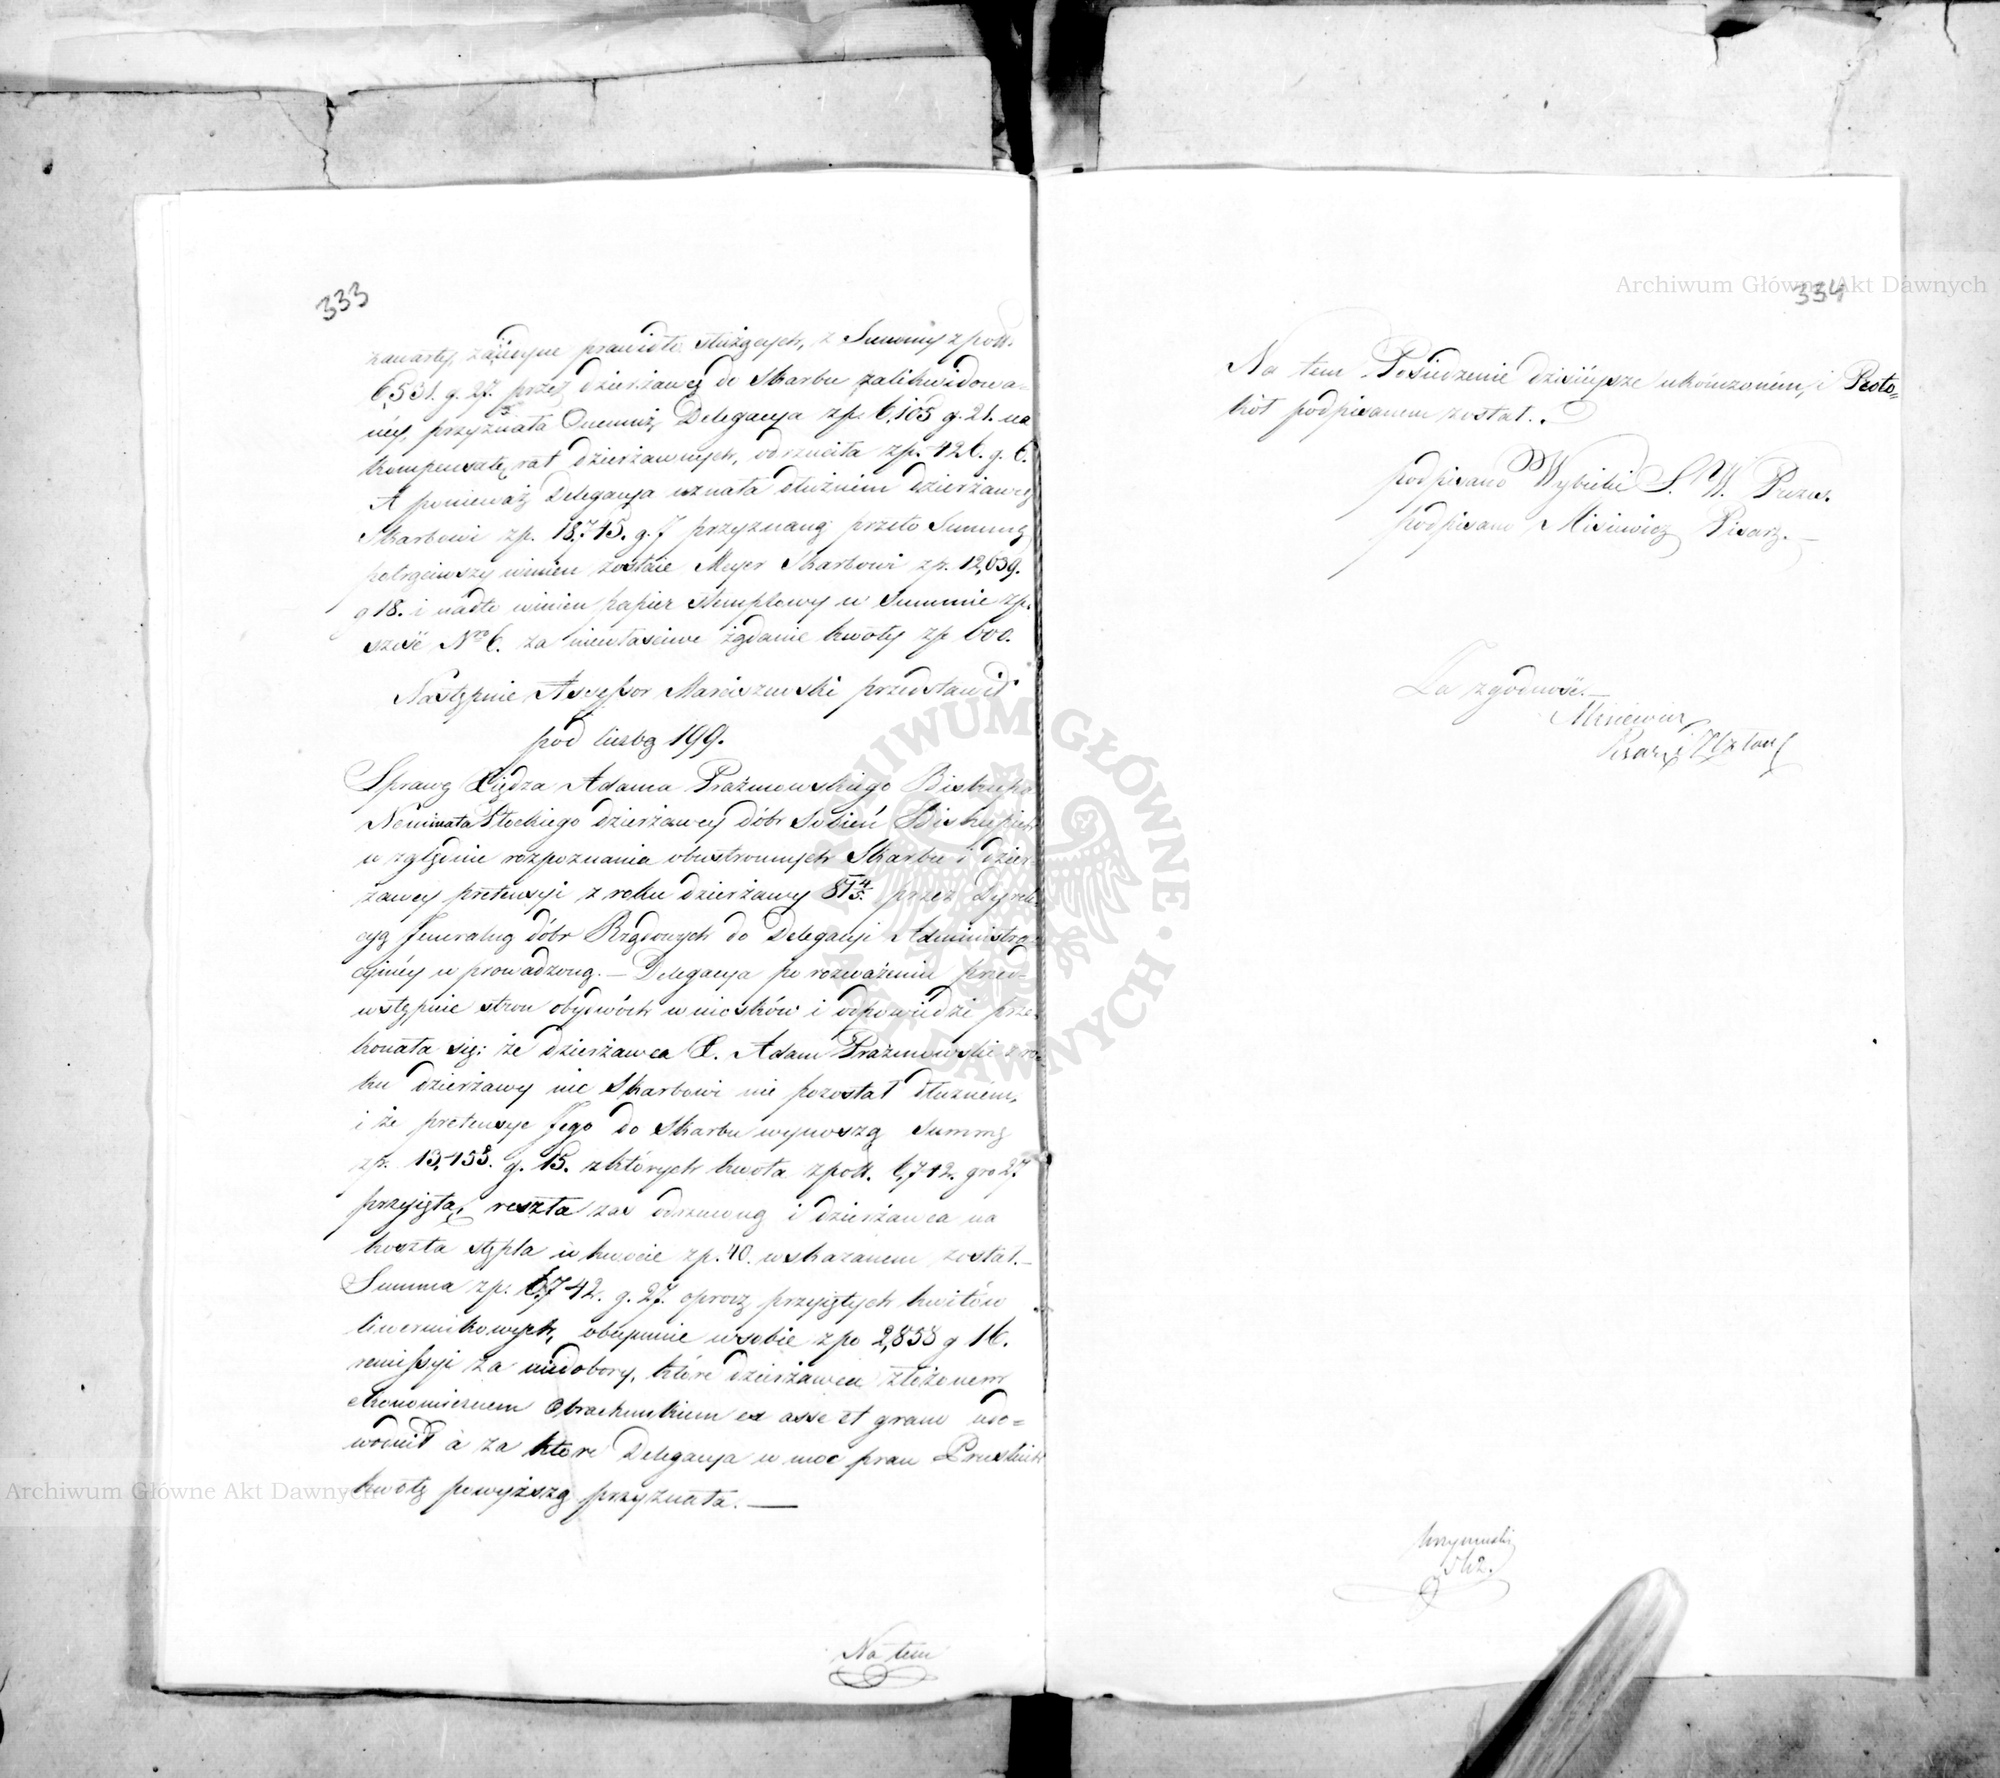 333
zawartej, za jedyne prawidło służących, z Summy zpoll.
6,531. g. 27. przez dzierżawcę do Skarbu zalikwidowa=
néy, przyznała Onemuż Delegacya zp. 6,105 g. 21. na
kompensatę rat dzierżawnych, odrzuciła zp. 426. g. 6.
A ponieważ Delegacya uznała dłużnem dzierżawcę
Skarbowi zp. 18,745. g. 7 przyznaną przeto Summę
potrąciwszy winien zostaie Meyer Skarbowi zp. 12,639.
g 18. i nadto winien papier stemplowy w Summie zp.
sześć Nro 6. za niewłaściwe żądanie kwoty zp 600.
Następnie Assessor Marciszewski przedstawił
pod liczbą 199.
Sprawę Xiędza Adama Prażmowskiego Biskupa
Nominata Płockiego dzierżawcy dóbr Sobień Biskupich
względnie rozpoznania obustronnych Skarbu i dzier=
żawcy pretensyi z roku dzierżawy 81 4/5. przez Dyrek=
cyą Jeneralną dóbr Rządowych do Delegacyi Administra=
cyinéy wprowadzoną. — Delegacya po rozważeniu przed=
wstępnie stron obydwóch wniosków i odpowiedzi prze=
konała się: że dzierżawca X. Adam Prażmowski z ro=
ku dzierżawy nic Skarbowi nie pozostał dłużném,
i że pretensye Jego do Skarbu wynoszą Summę
zp. 13,158. g. 15. z których kwota zpoll. 6,742. gro 27.
przyięta, reszta zaś odrzuconą i dzierżawca na
koszta stępla w kwocie zp. 40. wskazanem został. —
Summa zp. 6,742. g. 27. oprócz przyiętych kwitów
liwerunkowych, obeymuie w sobie zpo 2,858 g 16.
remissyi za niedobory, które dzierżawca złożonem
ekonomicznem Obrachunkiem ex asse et grano udo=
wodnił a za które Delegacya w moc praw Pruskich
kwotę powyższą przyznała. —
Na tem
334
Na tem Posiedzenie dzisiéysze ukończoném, i Proto=
kół podpisanem został.
podpisano Wybicki S. W. Prezes.
podpisano Misiewicz Pisarz. —
Za zgodność. —
Misiewicz
Pisarz
562.
Archiwum Główne Akt Dawnych
Archiwum Główne Akt Dawnych
ARCHIWUM GŁÓWNE AKT DAWNYCH